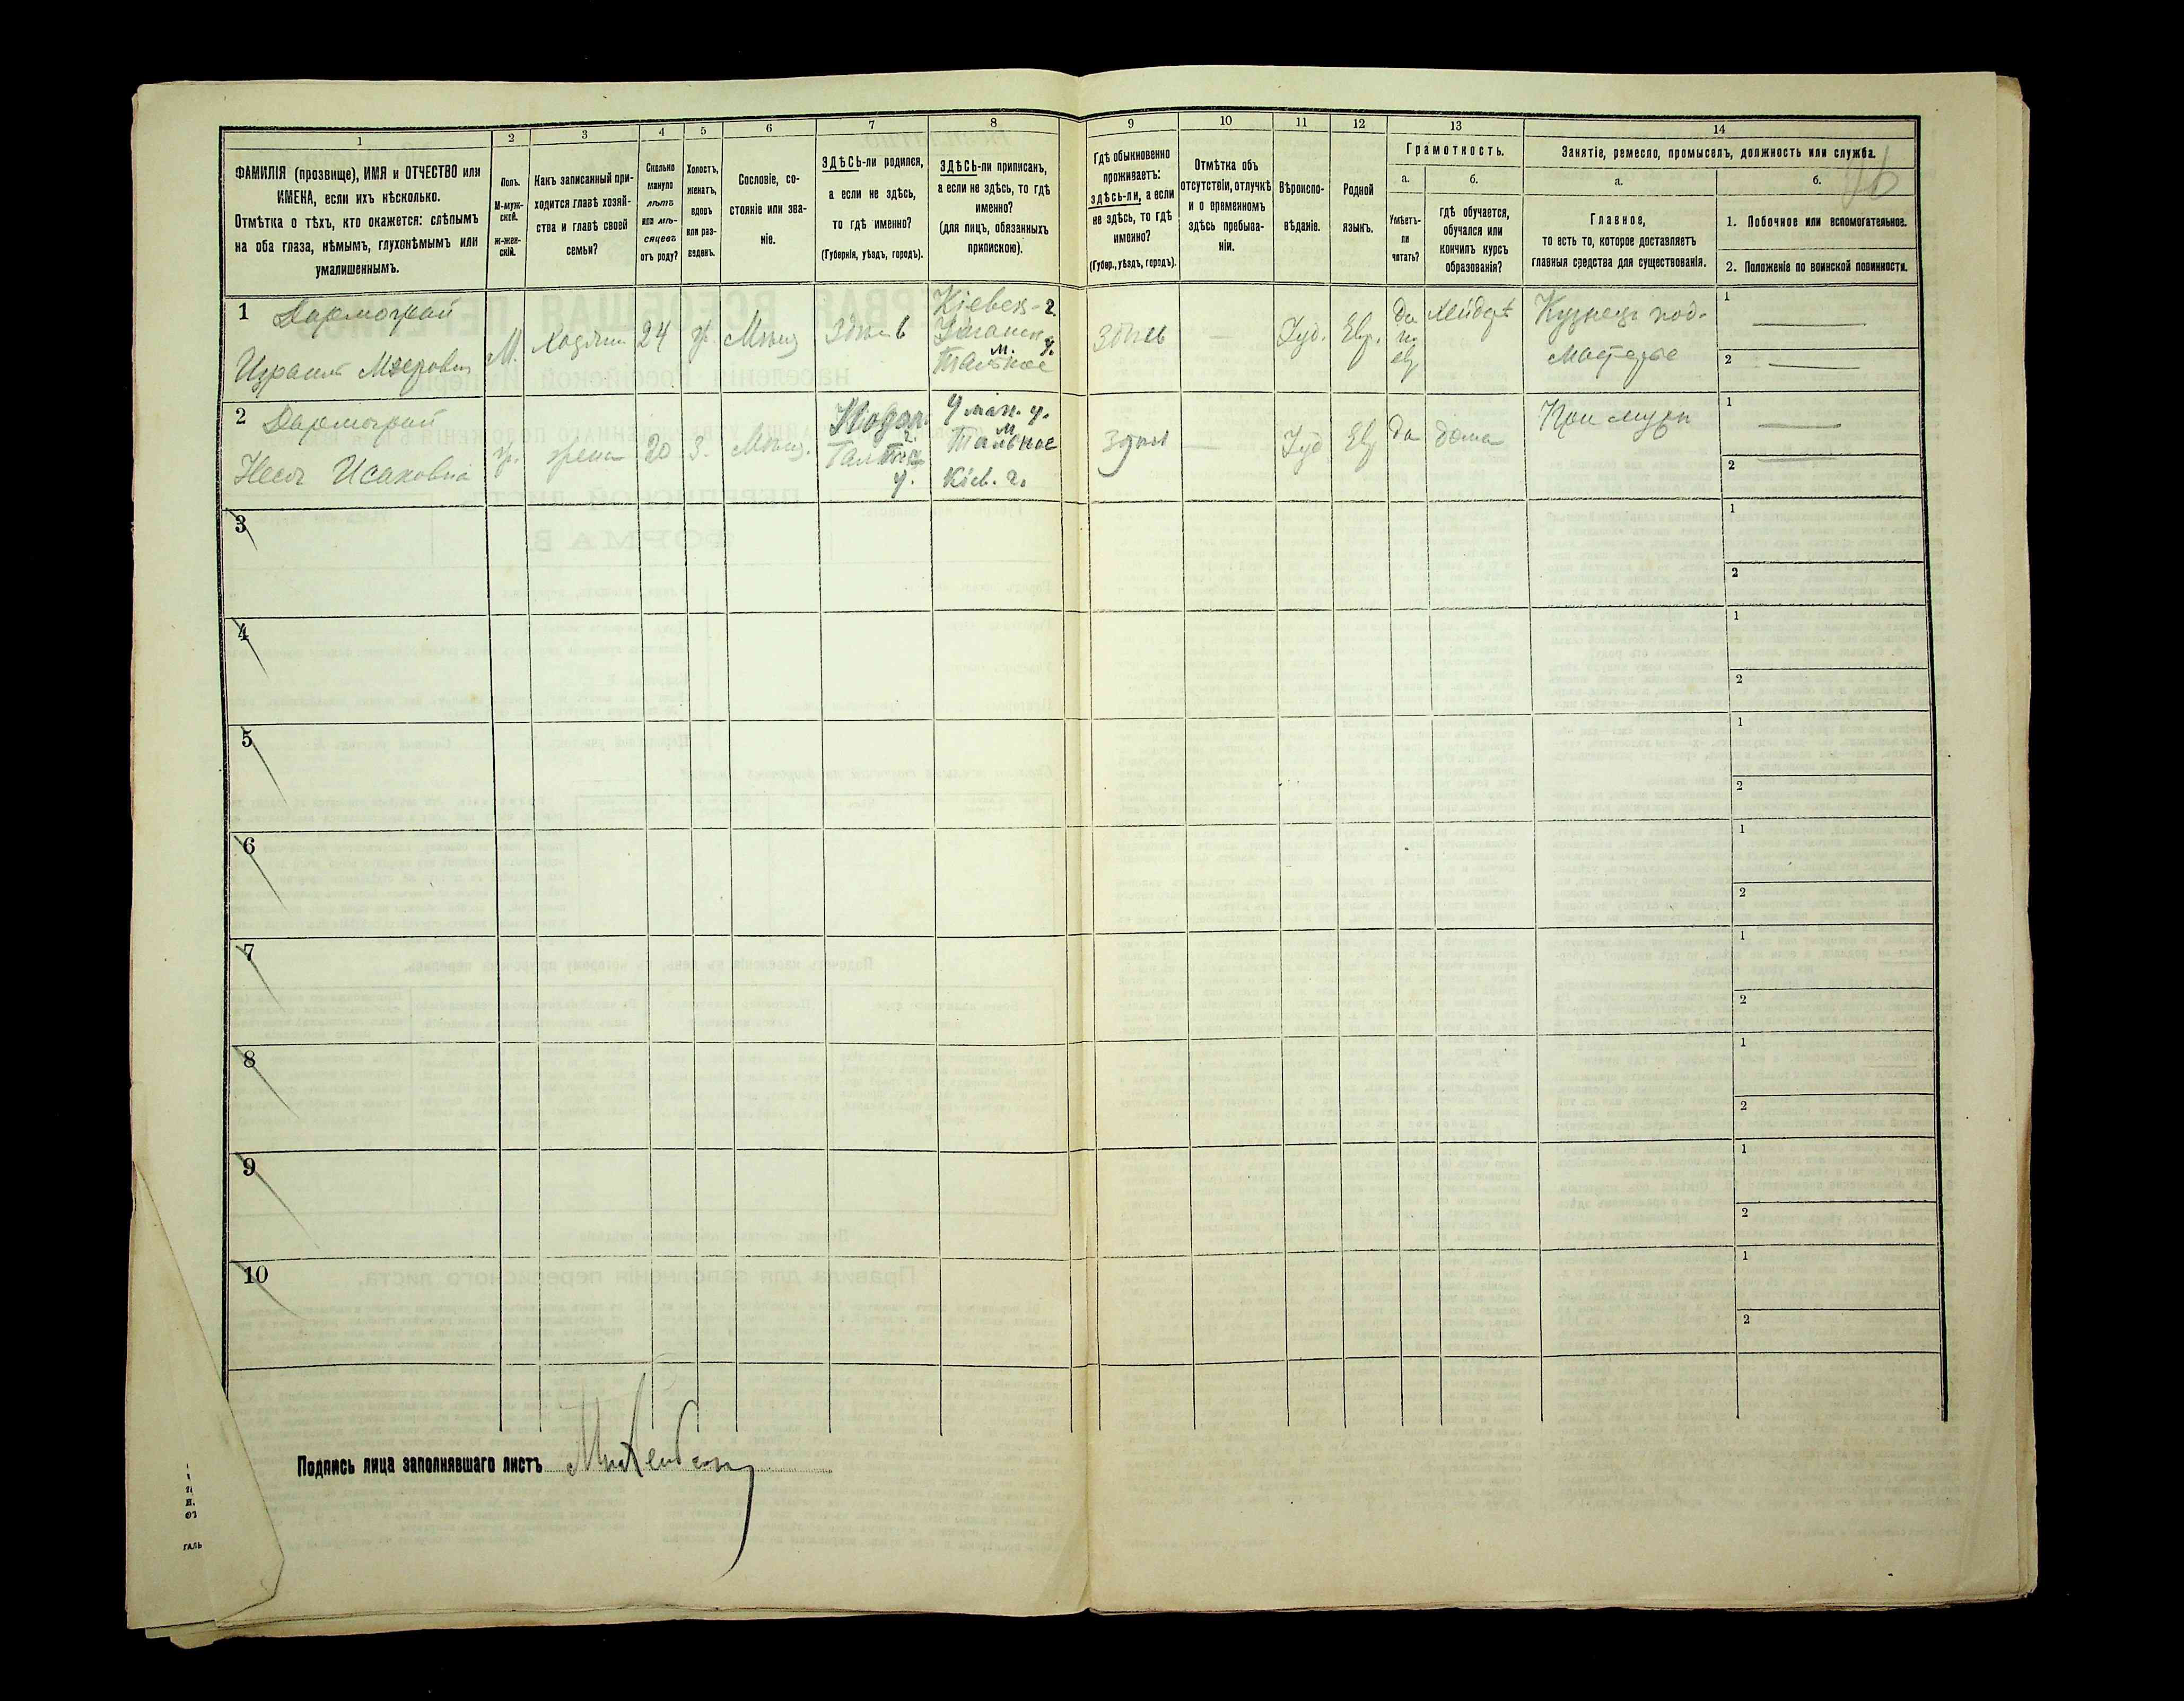 1
2
3
4
5
6
7
8
9
10
11
12
13
14
ФАМИЛІЯ (прозвище), ИМЯ и ОТЧЕСТВО или
ИМЕНА, если ихъ нѣсколько.
Отмѣтка о тѣхъ, кто окажется: слѣпымъ
на оба глаза, нѣмымъ, глухонѣмымъ или
умалишеннымъ.
Полъ.
М-муж-
ской.
ж-жен-
скій.
Какъ записанный при-
ходится главѣ хозяй-
ства и главѣ своей
семьи?
Сколько
минуло
лѣтъ
или мѣ-
сяцевъ
отъ роду?
Холостъ,
женатъ,
вдовъ
или раз-
веденъ.
Сословіе, со-
стояніе или зва-
ніе.
ЗДѢСЬ-ли родился,
а если не здѣсь,
то гдѣ именно?
(Губернія, уѣздъ, городъ).
ЗДѢСЬ-ли приписанъ,
а если не здѣсь, то гдѣ
именно?
(для лицъ, обязанныхъ
припискою).
Гдѣ обыкновенно
проживаетъ:
здѣсь-ли, а если
не здѣсь, то гдѣ
именно?
(Губер., уѣздъ, городъ).
Отмѣтка объ
отсутствіи, отлучкѣ
и о временномъ
здѣсь пребыва-
ніи.
Вѣроиспо-
вѣданіе.
Родной
языкъ.
Грамотность.
а.
Умѣетъ-
ли
читать?
б.
гдѣ обучается,
обучался или
кончилъ курсъ
образованія?
Занятіе, ремесло, промыселъ, должность или служба.
а.
Главное,
то есть то, которое доставляетъ
главныя средства для существованія.
б.
1. Побочное или вспомогательное.
2. Положеніе по воинской повинности.
1 Дармограй
Израиль Меерович
М.
хозяин
24
ж.
Мѣщ
Здѣсь
Кіевск. г.
Уманск. у.
м.
Тальное
Здѣсь
—
Іуд.
Евр.
Да
по
евр
хейдерѣ
Кузнецъ под-
мастерье
1
2
2 Дармограй
Несъ Исаковна
ж.
жена
20
З.
Мѣщ.
Подол.
г.
у.
Уман. у.
м.
Тальное
Кіев. г.
Здѣсь
—
Іуд
Евр
да
дома
При мужѣ
1
2
3
1
2
4
1
2
5
1
2
6
1
2
7
1
2
8
1
2
9
1
2
10
1
2
Подпись лица заполнявшаго листъ